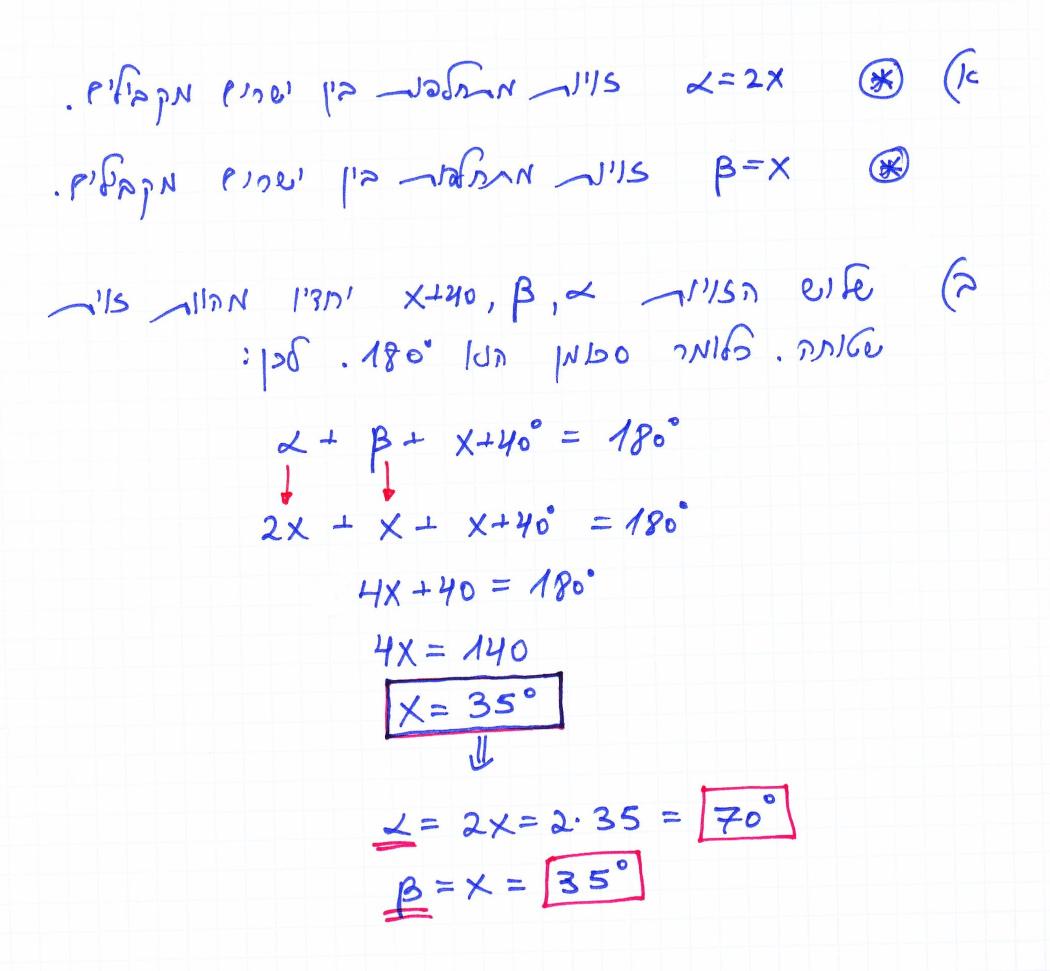 א) ⊛ α=2x זוויות מתחלפות בין ישרים מקבילים.
⊛ β=x זוויות מתחלפות בין ישרים מקבילים.
ב) שלוש הזוויות α, β, x+40 יחדיו מהוות זווית
שטוחה. כלומר סכומן הוא 180°. לכן:
α + β + x+40° = 180°
↓ ↓
2x + x + x+40° = 180°
4x+40 = 180°
4x = 140
x = 35°
⇓
α = 2x = 2·35 = 70°
β = x = 35°